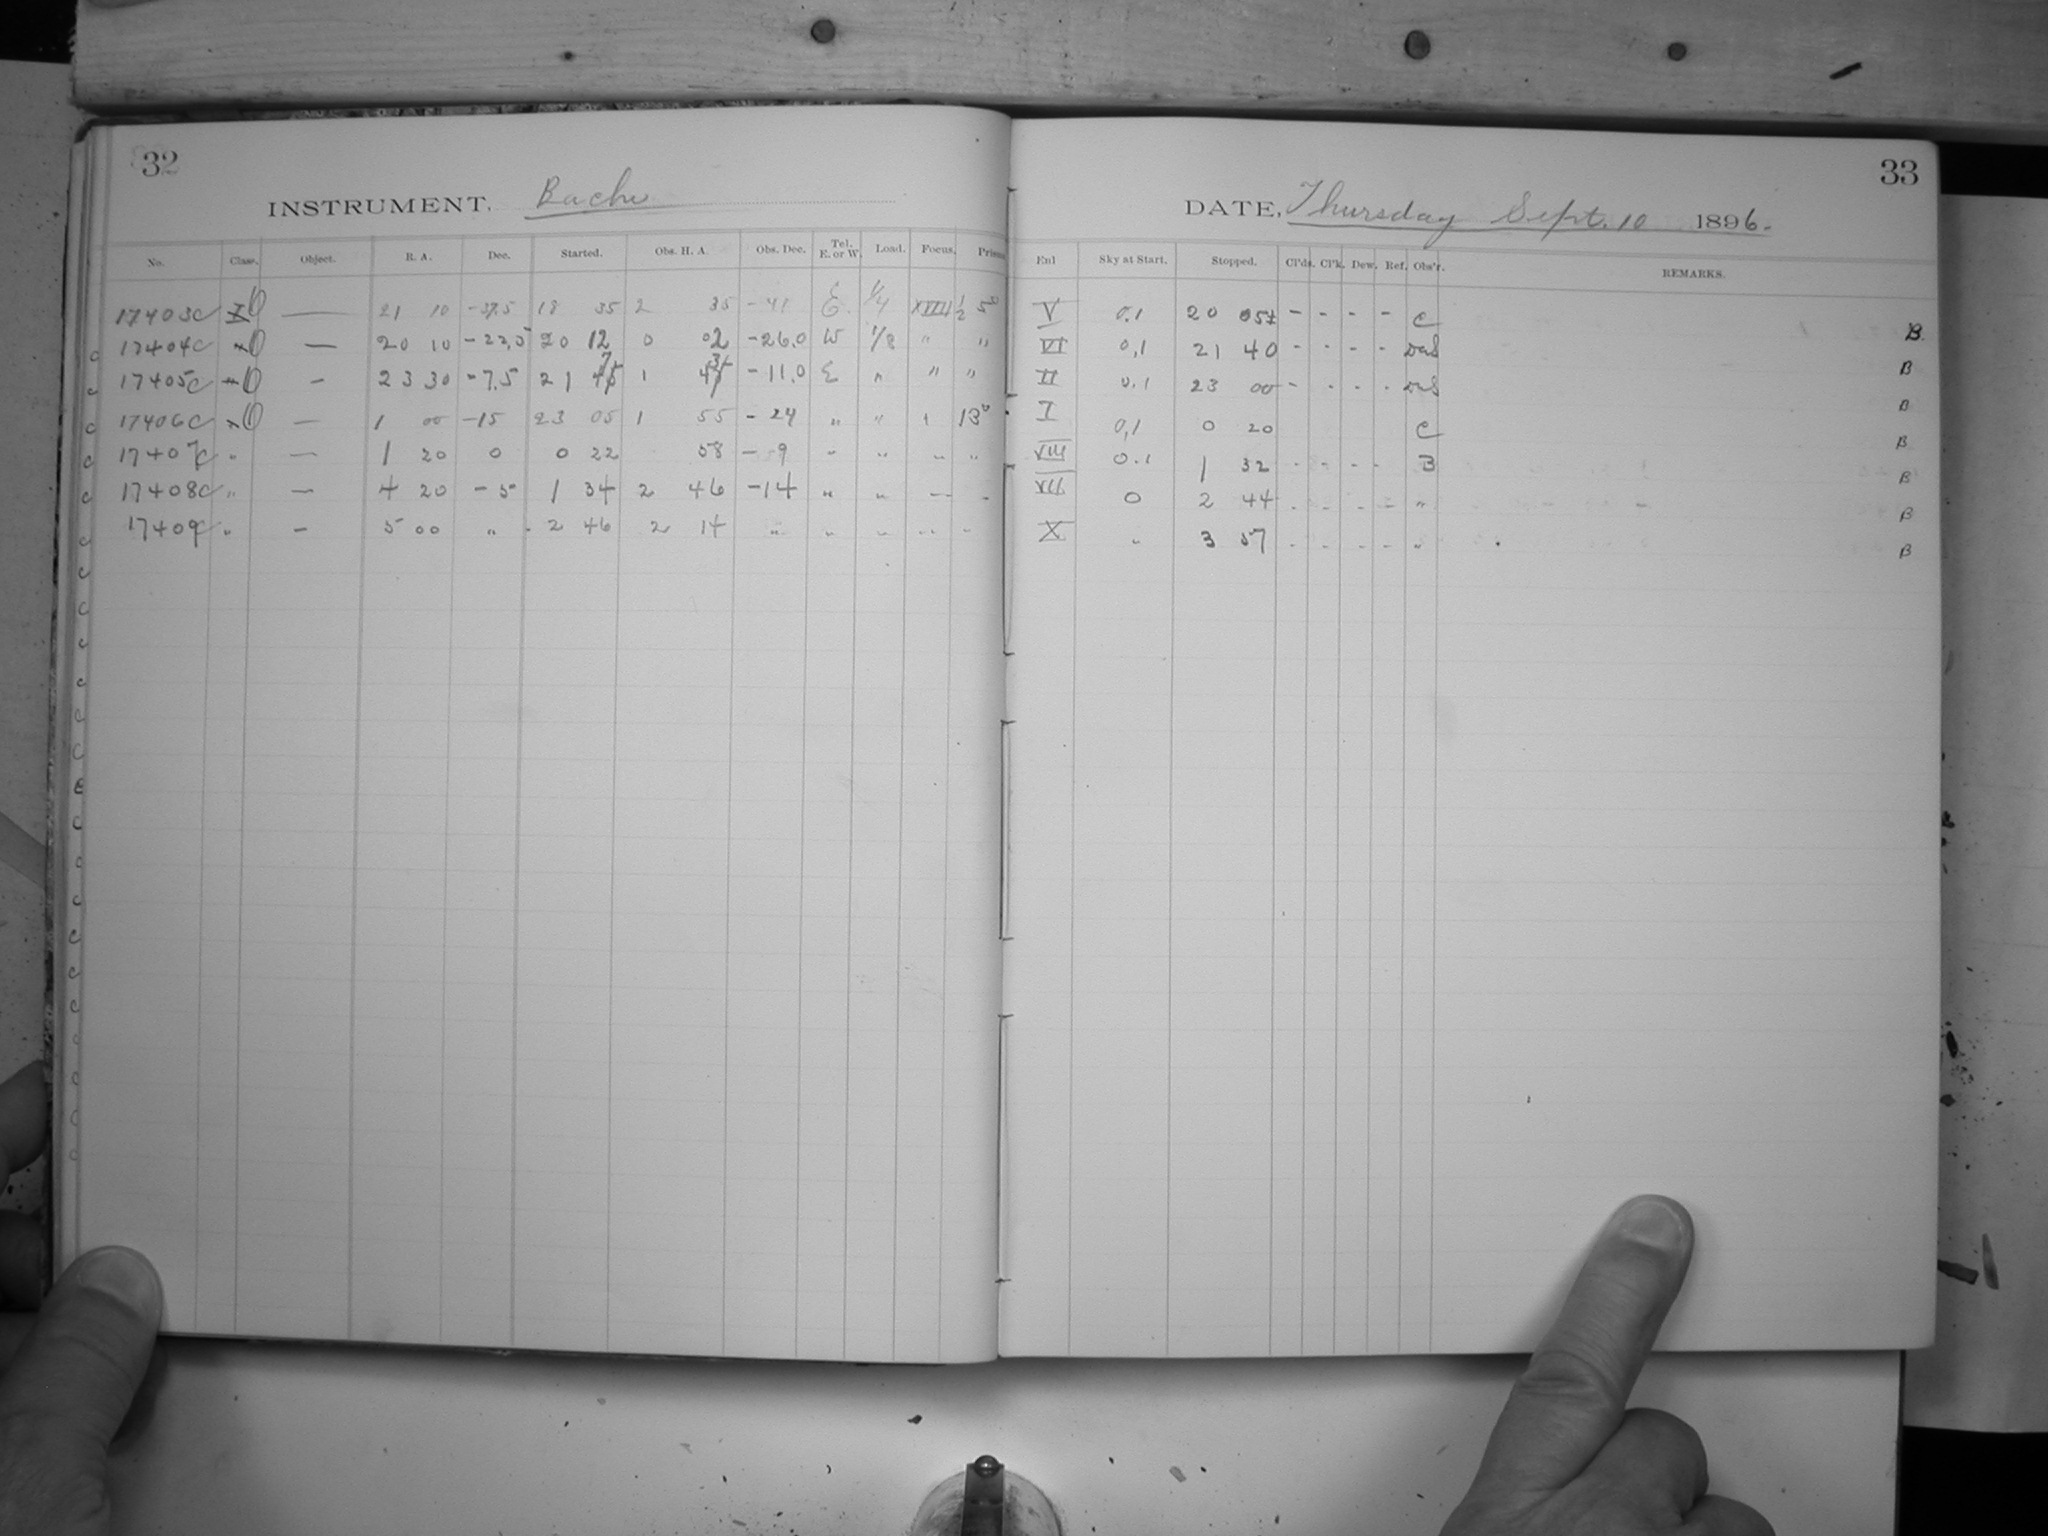 32
INSTRUMENT, Bache
No. Class. Object. R. A. Dec. Started. Obs. H. A. Obs. Dec. Tel. E. or W. Load. Focus. Prism
17403C X — 21 10 -37.5 18 35 2 35 -41 E 1/4 XVIII 1/2 5°
17404C X — 20 10 -22.5 20 12 0 02 -26.0 W 1/8 " "
17405C X — 23 30 -7.5 21 1 -11.0 E " " "
17406C X — 1 00 -15 23 05 1 55 -24 " " " 13°
17407C " — 1 20 0 0 22 58 -9 " " " "
17408C " — 4 20 -5 1 34 2 46 -14 " " — -
17409C " — 5 00 " 2 46 2 14 " " " " "
33
DATE, Thursday Sept. 10 1896.
Enl Sky at Start. Stopped. Cl'ds. Cl'k. Dew. Ref. Obs'r. REMARKS.
V 0.1 20 - - - - C B.
VI 0,1 21 40 - - - - B
II 0.1 23 00 - - - - B
I 0,1 0 20 C B
VIII 0.1 1 32 - - - - B B
XII 0 2 44 - - - - " B
X " 3 57 - - - - " B